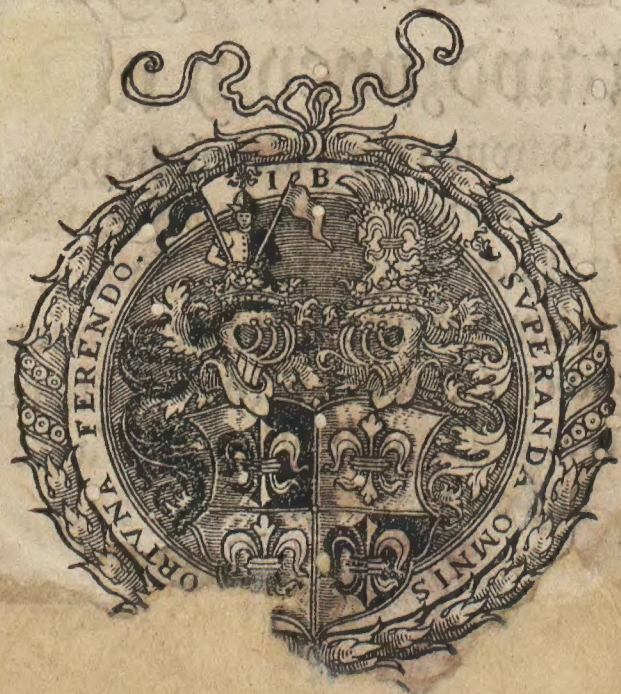 I B
SVPERANDA OMNIS
ORTVNA FERENDO.